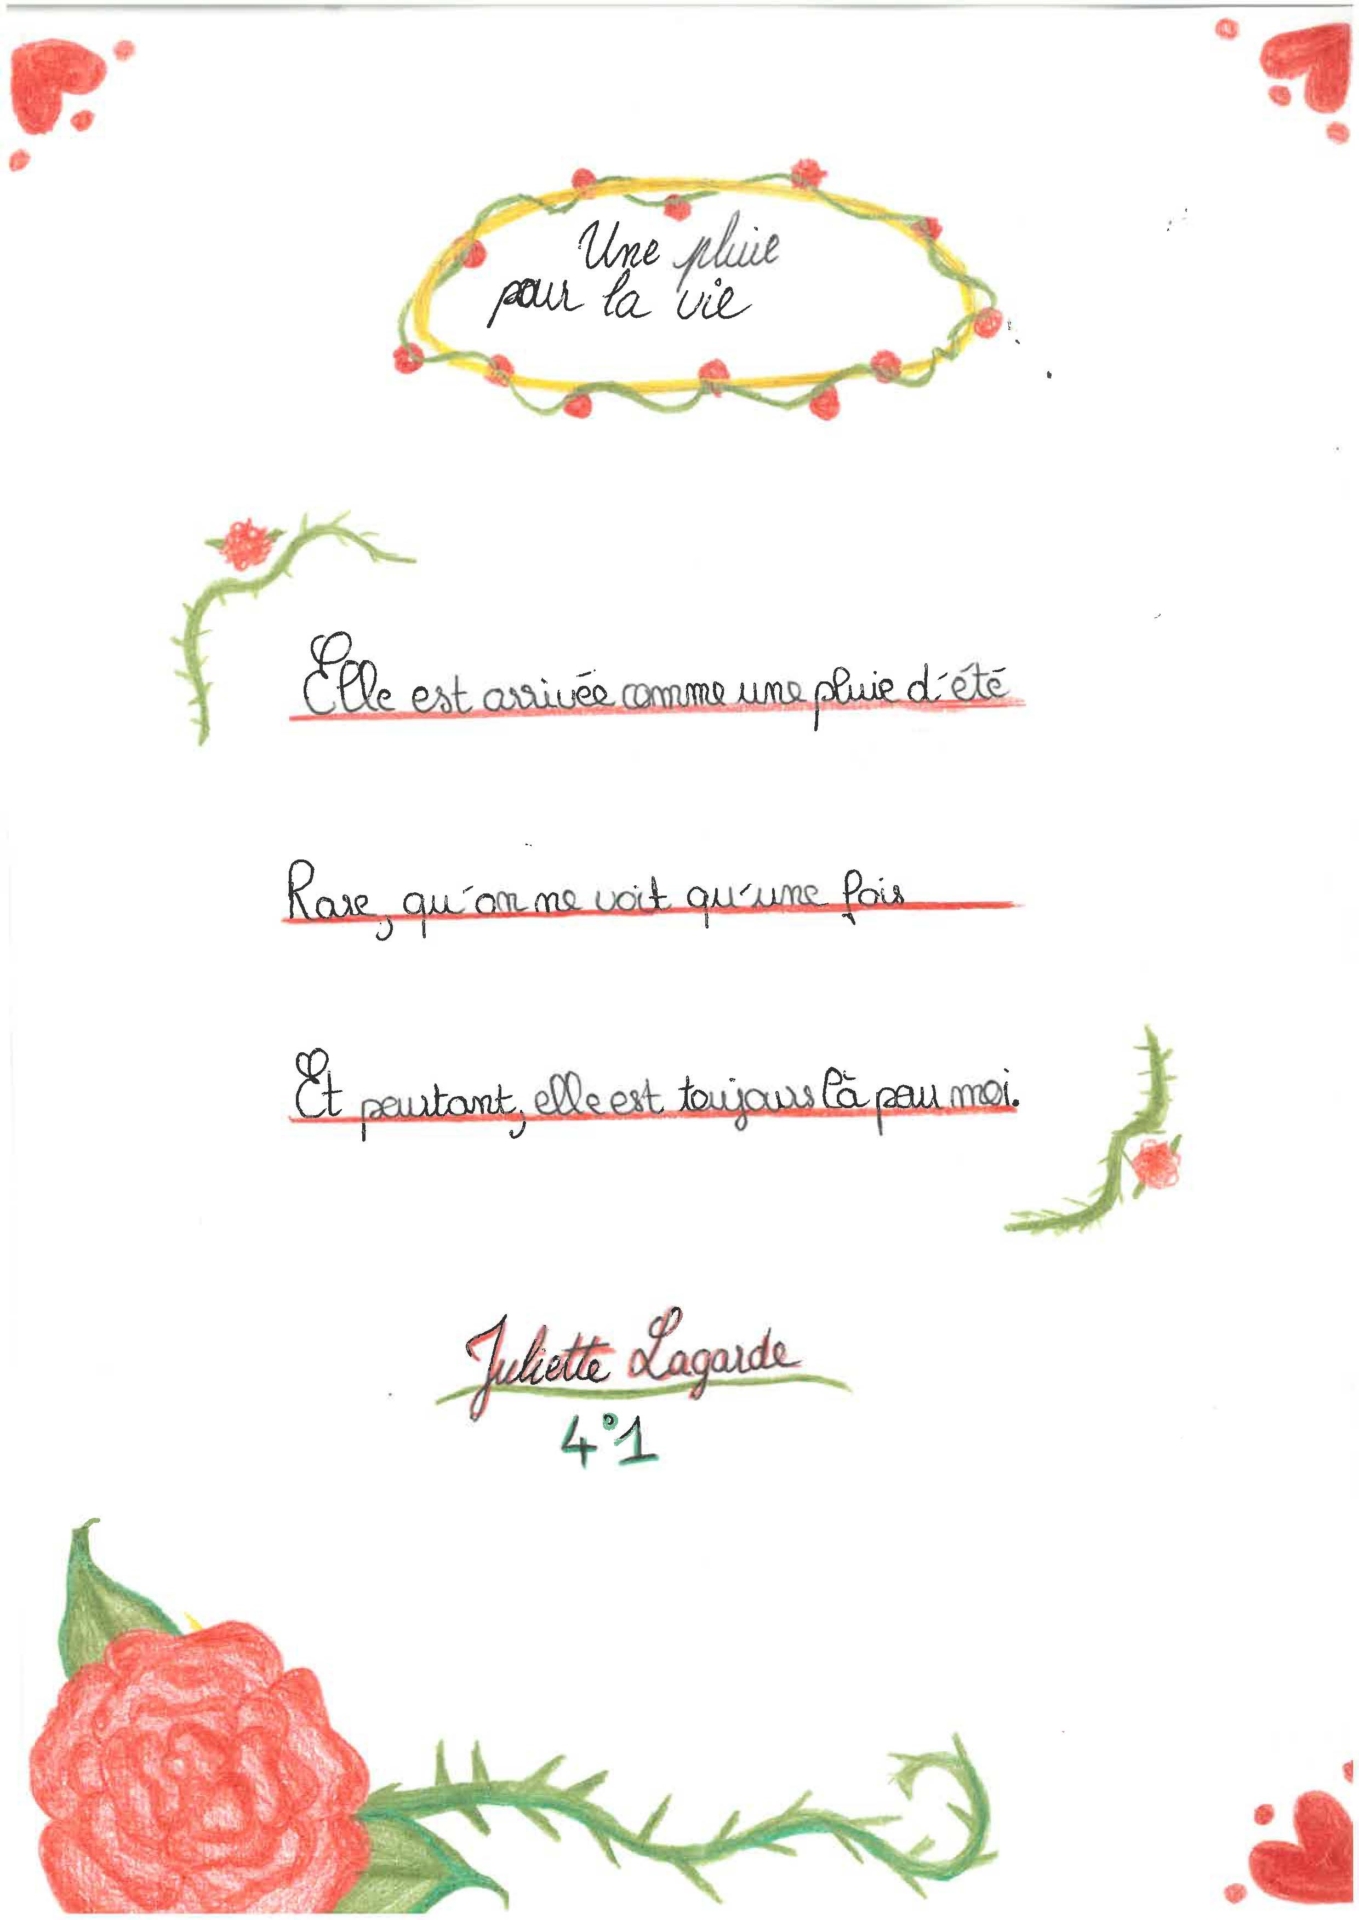 Une pluie
pour la vie
Elle est arrivée comme une pluie d'été
Rare, qu'on ne voit qu'une fois
Et pourtant, elle est toujours là pour moi.
Juliette Lagarde
4°1